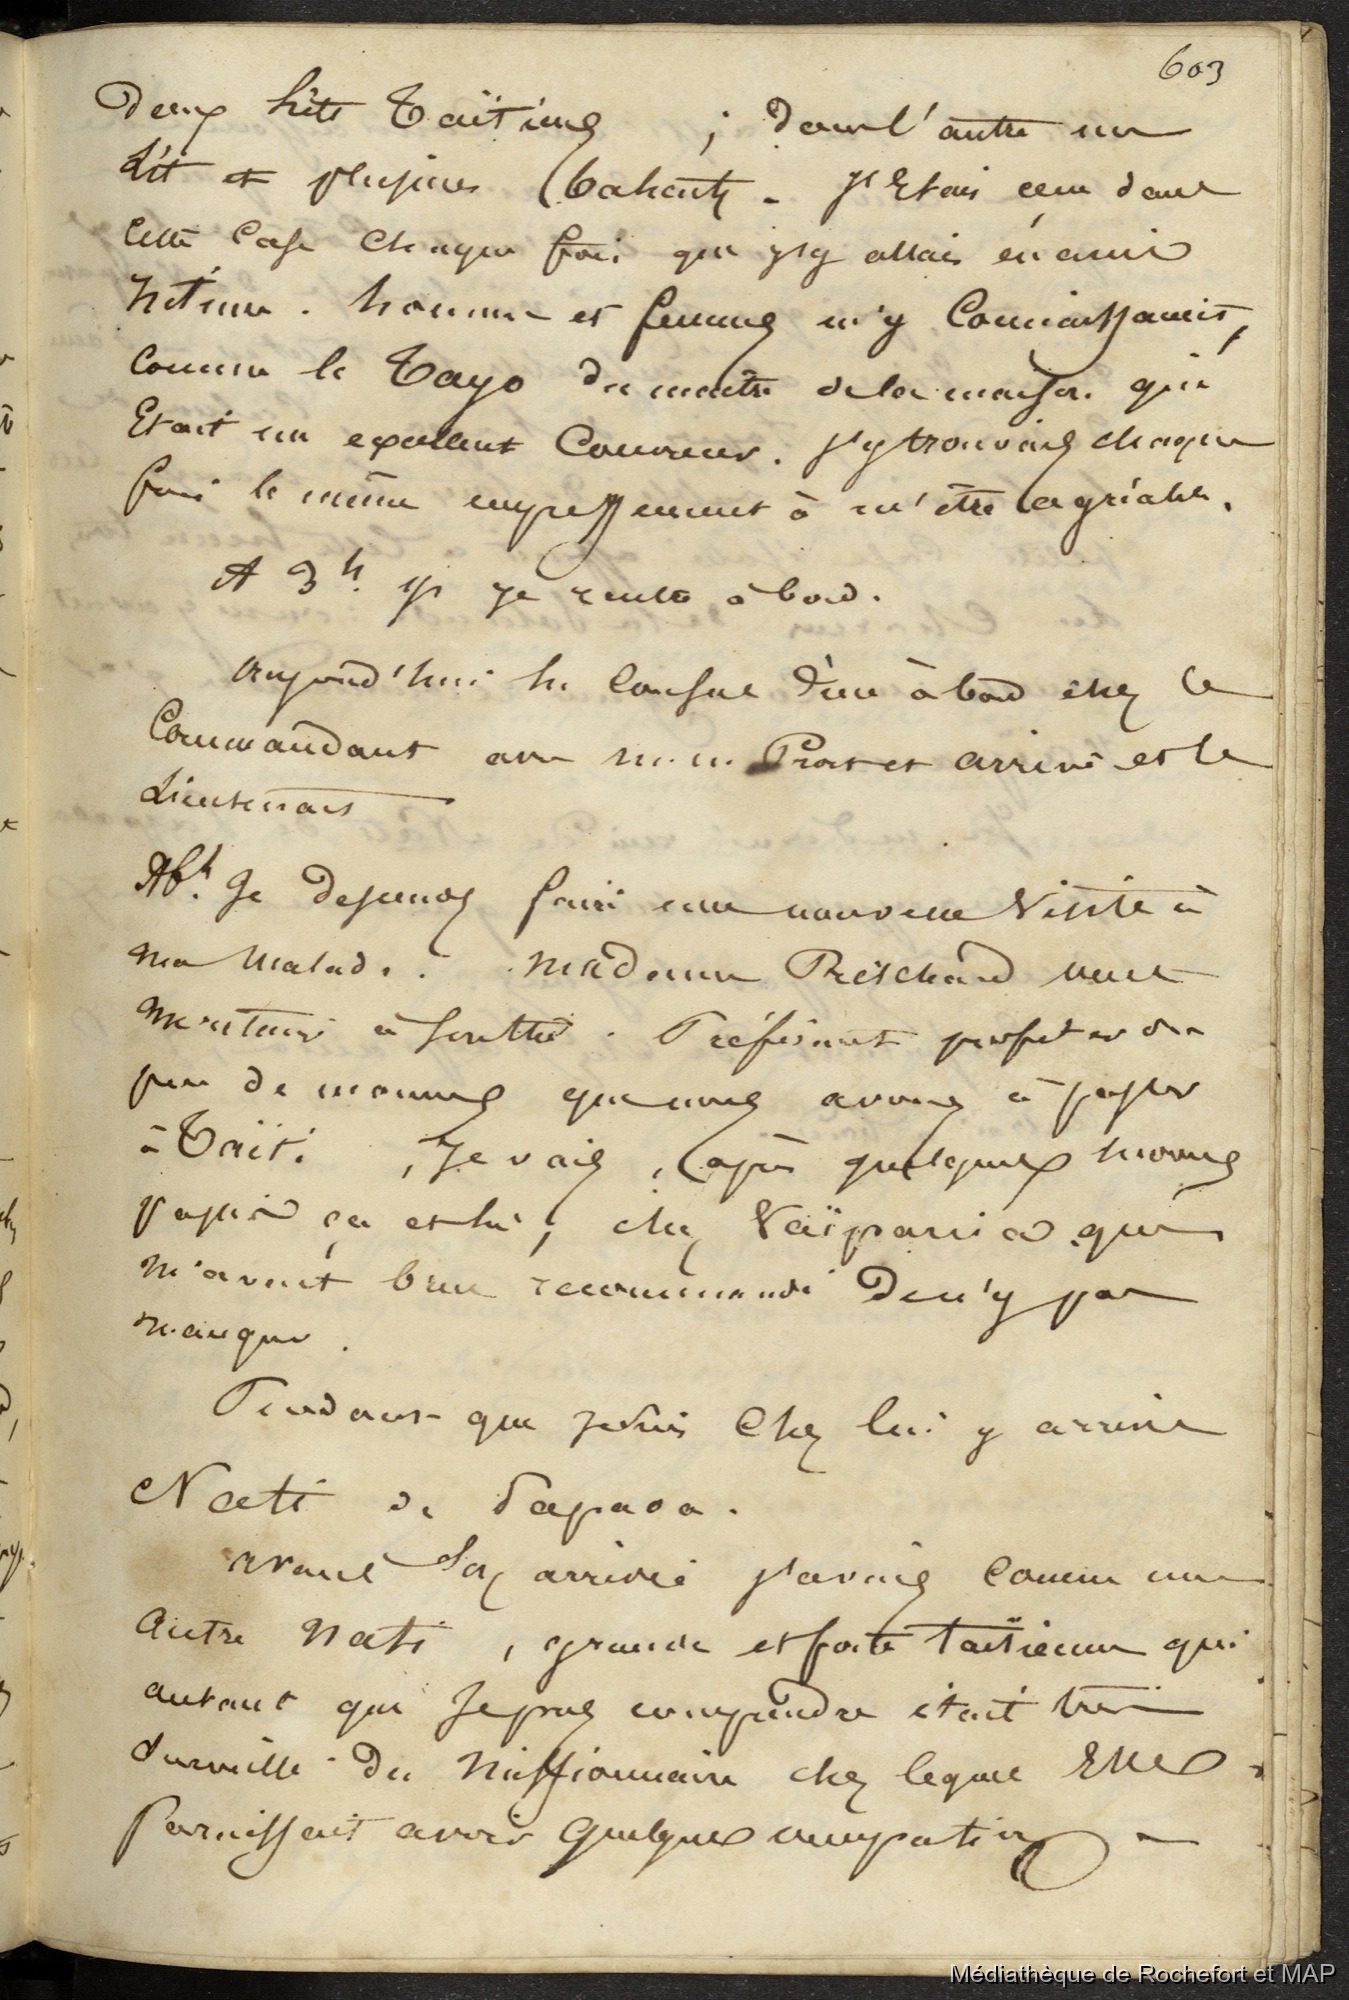 603
Deux lits Taïtiens ; dans l'autre un
Lit et plusieurs Bahuts. J'Etais reçu dans
Cette Case Chaque fois que j'y allais en ami
Intime. homme et femmes m'y Connaissaient,
Comme le Tayo du maître de la maison qui
Etait un excellent Couvreur. J'y trouvais chaque
fois le même empressement à m'être agréable.
A 3h. je rentre à bord.
aujourd'hui le Consul dîne à bord chez le
Commandant avec m.m. Prat et arrivé et le
Lieutenant
A 6h. Je Descends faire une nouvelle Visite à
ma Malade. Madame Pritchard
à Souffrir. Préférant profiter du
peu de moments que nous avons à passer
à Taïti, Je vais, après quelques moments
passés çà et là, chez Vaïpania qui
m'avait bien recommandé De n'y pas
manquer.
Pendant que je suis Chez lui y arrive
Nati de Papaoa.
avant Son arrivée J'avais Connu une
autre Nati, grande et forte taïtienne qui
autant que Je pus comprendre était très
Surveillée Du Missionnaire chez lequel Elle
Paraissait avoir Quelques occupations
Médiathèque de Rochefort et MAP